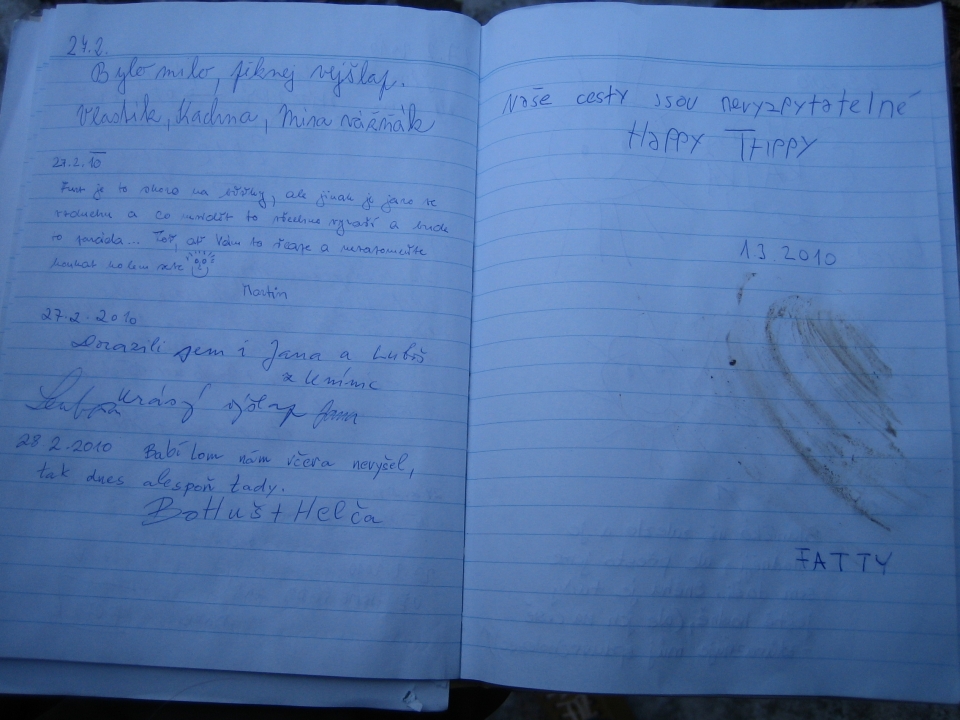 24.2.
Bylo milo, piknej vejšlap.
Vlastik, Kachna, Mira
27.2.10
je to skoro na, ale jinak je jaro ve
vzduchu a co to všechno a bude
to paráda... ať Vám to a nezapomeňte
koukat kolem sebe
Martin
27.2.2010
Dorazili jsem i Jana a Luboš
z Kninic
Krásný výšlap Jana
28 2.2010 Babí lom nám včera nevyšel,
tak dnes alespoň tady.
Bohuš + Helča
Naše cesty jsou nevyzpytatelné
HAPPY TRIPPY
1.3.2010
FATTY